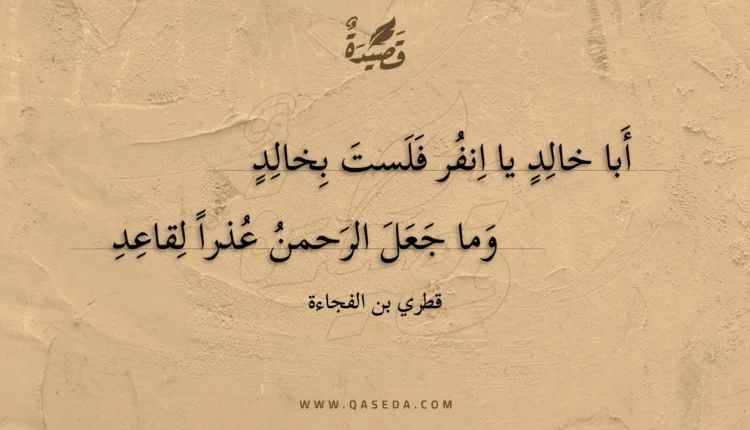 قَصِيْدَةٌ
أَبا خالِدٍ يا اِنفُر فَلَستَ بِخالِدٍ
وَما جَعَلَ الرَحمنُ عُذراً لِقاعِدِ
قطري بن الفجاءة
WWW.QASEDA.COM